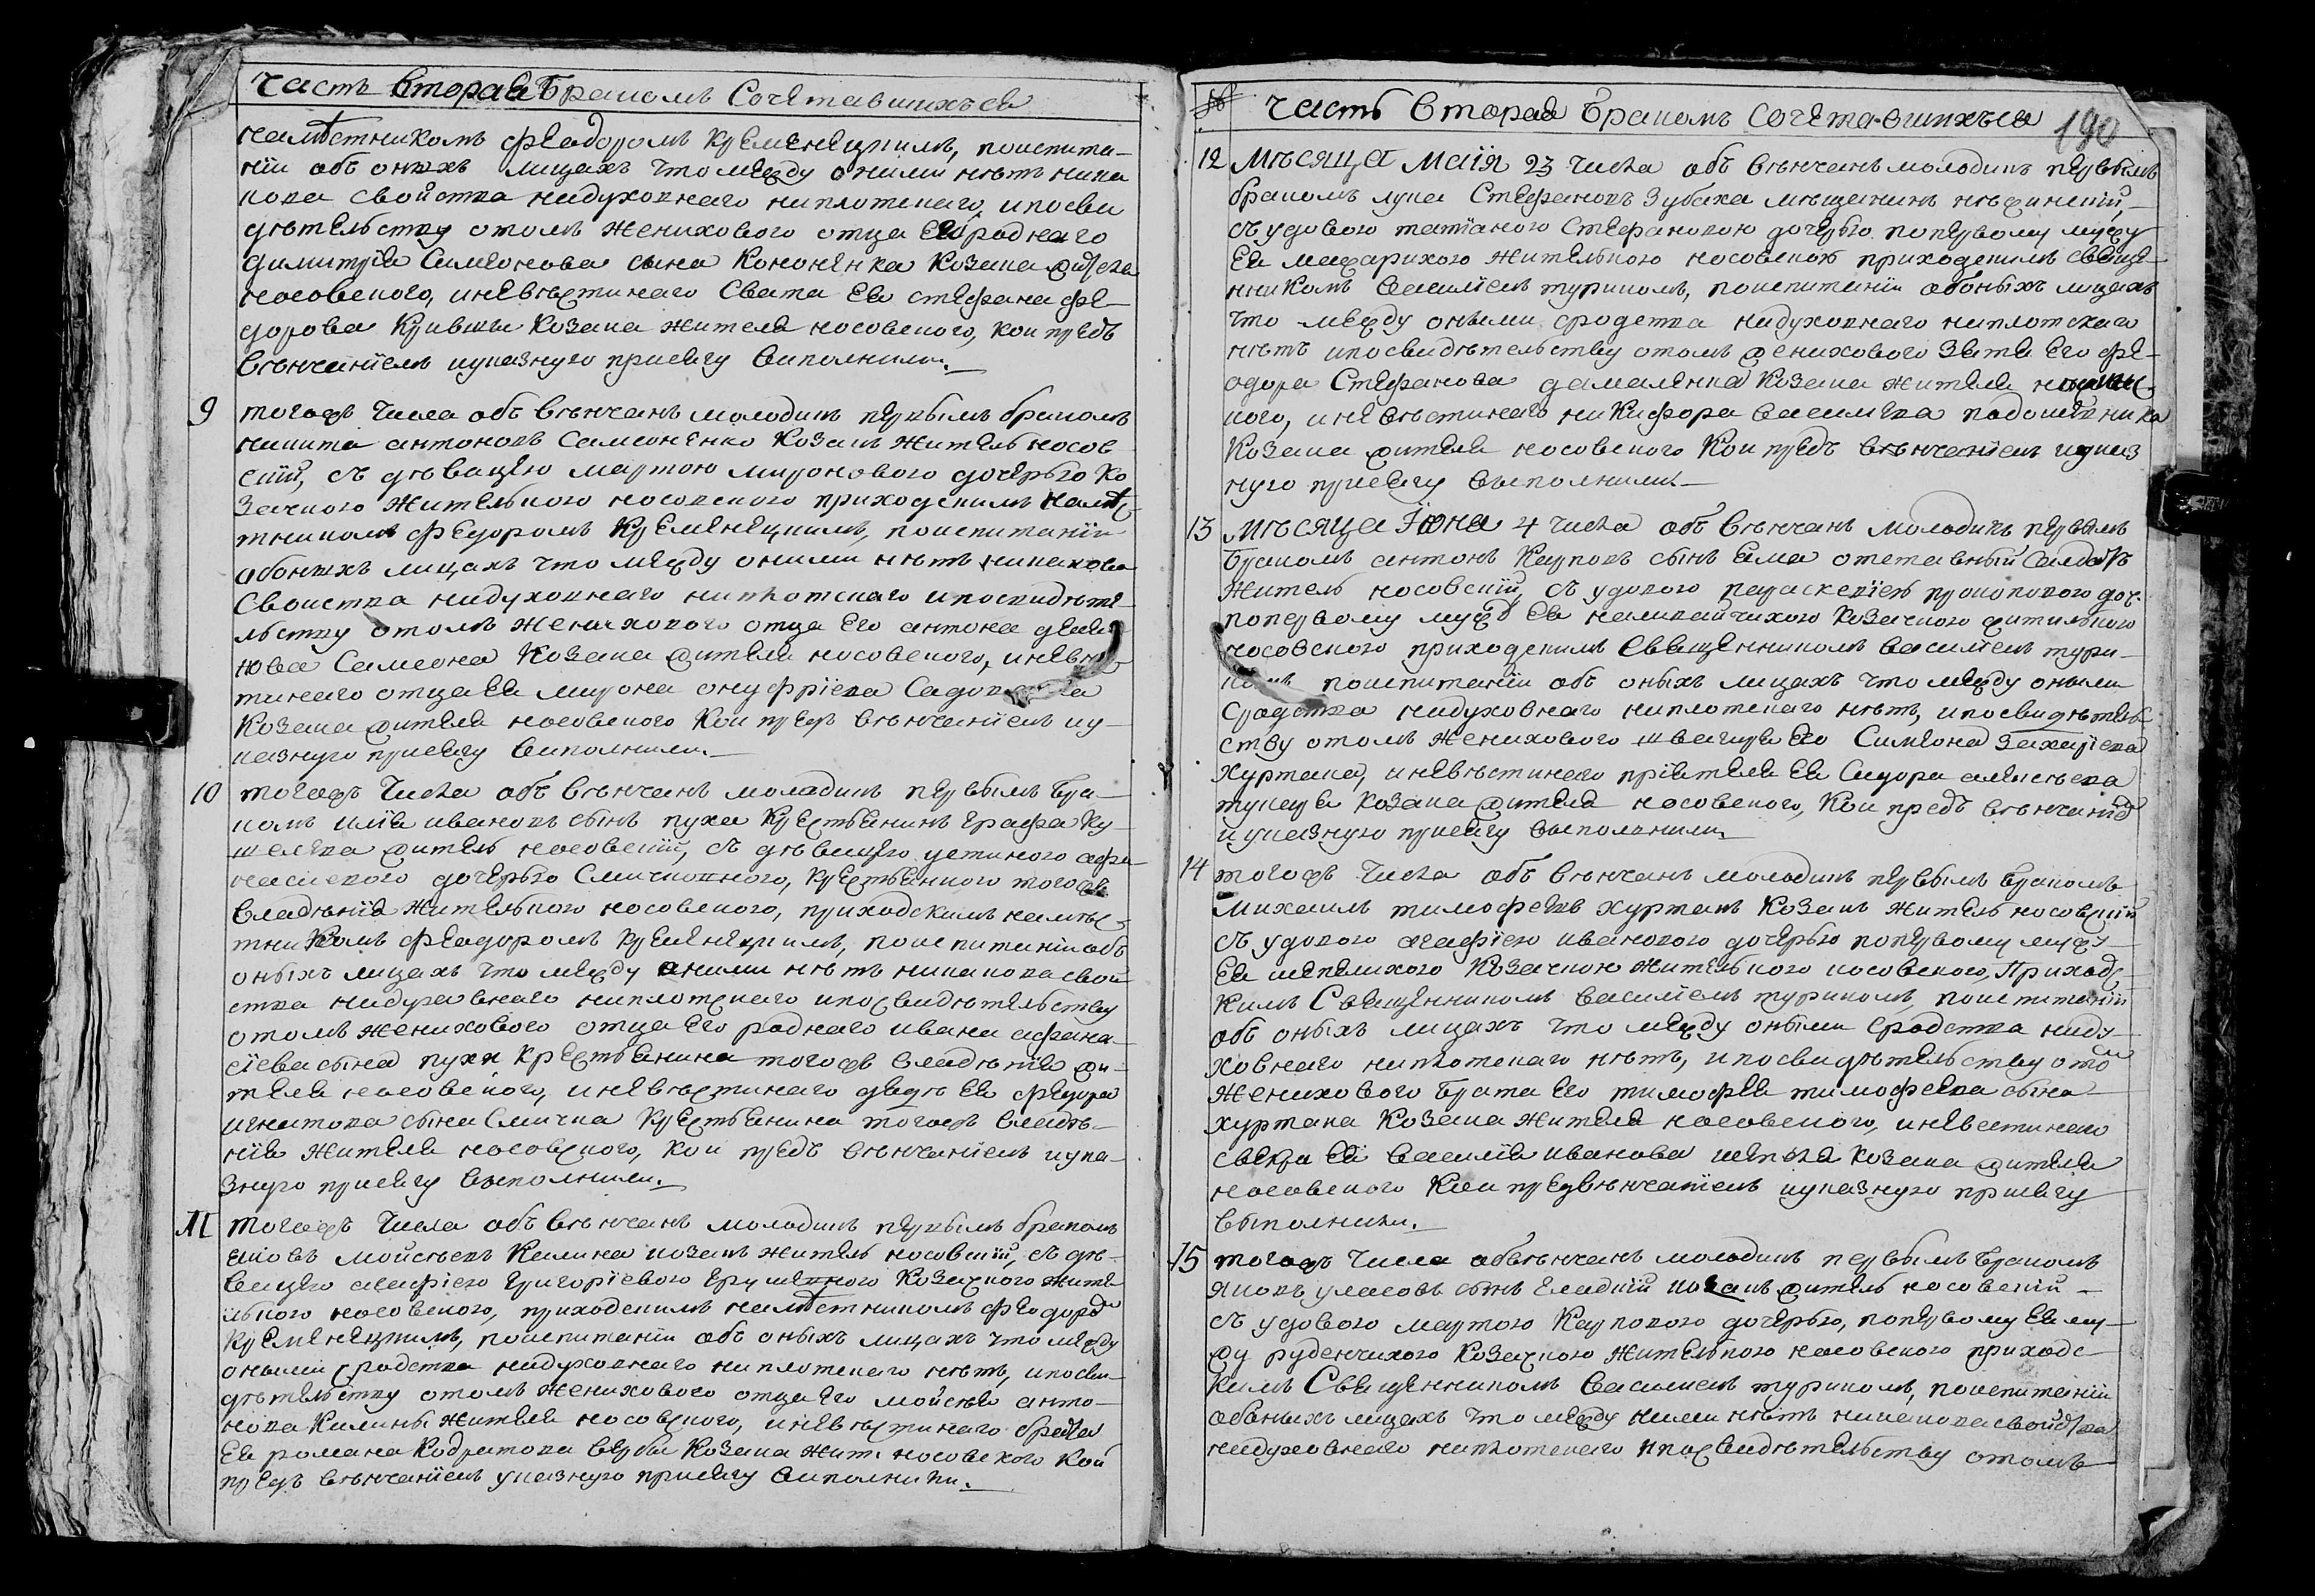 Часть вторая Бракомъ Сочетавшихъся
намѣстникомъ Феодоромъ Кременецкимъ, поиспита-
нїи объ онихъ лицахъ что между оними нѣтъ ника
кова свойства нидуховнаго ниплотскаго, ипосви
дѣтельству отомъ женихового отца его роднаго
Димитрїя Симеонова сына Кононенка козака жителя
носовского, иневѣстинаго свата ея Стефана Фе-
дорова козака жителя носовского, кои предъ
вѣнчанїемъ иуказную присягу виполнили.
9 тогожъ числа объ вѣнчанъ молодикъ первымъ бракомъ
никита антоновъ Самсоненко козакъ житель носов
скїй, съ дѣвицею мартою мироновою дочерью ко
зачкою жителькою носовскою приходскимъ намѣс-
тникомъ Федоромъ Кременецкимъ, поиспитанїи
обонихъ лицахъ что между оними нѣтъ никакова
Свойства нидуховнаго ниплотскаго ипосвидѣте-
льству отомъ женихового отца его антона
Самсона козака жителя носовского, иневѣс
тинаго отца ея мирона онуфрїева
козака жителя носовского кои предъ вѣнчанїемъ иу-
казную присягу виполнили.
10 тогожъ числа объ вѣнчанъ молодикъ первымъ бра-
комъ илїя ивановъ сынъ пуха крестьянинъ графа Ку-
шелева житель носовскїй, съ дѣвицею устиною афа
насиевою дочерью Смичковною, крестьянкою тогожъ
владѣнїя жителькою носовскою, приходскимъ намѣс-
тникомъ Феодоромъ Кременецкимъ, поиспитанїи объ
оныхъ лицахъ что между оними нѣтъ никакова свой
ства нидуховнаго ниплотскаго ипосвидѣтельству
отомъ женихового отца его роднаго ивана афана-
сїева сына пухи крестьянина тогожъ владѣнїя жи-
теля носовского, иневѣстинаго дядѣ ея Федора
игнатова сына Смичка крестьянина тогожъ владѣ-
нїя жителя носовского, кои предъ вѣнчанїемъ иука-
зную присягу выполнили.
11 тогожъ числа объ вѣнчанъ молодикъ первымъ бракомъ
яковъ мойсѣевъ Калина козакъ житель носовскїй, съ дѣ-
вицею агафїею григорїевою козачкою жите
лькою носовскою, приходскимъ намѣстникомъ Феодоромъ
Кременецкимъ, поиспитанїи объ оныхъ лицахъ что между
оными сродства нидуховнаго ниплотскаго нѣтъ, ипосви-
дѣтельству отомъ женихового отца его мойсѣя анто-
нова Калины жителя носовского, иневѣстинаго брата
ея романа Кодратова вербы козака жит. носовского кои
предъ вѣнчанїемъ указную присягу виполнили.
Часть вторая бракомъ сочетавшихъся 190
12 Мѣсяца маїя 23 числа объ вѣнчанъ молодикъ первымъ
бракомъ лука Стефановъ Зубаха мѣщанинъ нѣжинскїй,
съ удовою татїаною Стефановою дочерью попервому мужу
ея жителькою носовскою приходскимъ свяще-
нникомъ василїемъ турикомъ, поиспитанїи обоныхъ лицахъ
что между оными сродства нидуховнаго ниплотскаго
нѣтъ ипосвидѣтельству отомъ женихового зятя его фе-
одора Стефанова козака жителя
кого, иневѣстинаго никифора василїева
козака жителя носовского кои предъ вѣнчанїемъ иуказ
ную присягу выполнили.
13 Мѣсяца Їюня 4 числа объ вѣнчанъ молодикъ первымъ
бракомъ антонъ Карповъ сынъ отставный салдатъ
житель носовскїй, съ удовою параскевїею прокоповою доч.
попервому мужу ея наливайчихою козачкою жителькою
носовскою приходскимъ священникомъ василїемъ тури-
комъ поиспитанїи объ оныхъ лицахъ что между оными
сродства нидуховнаго ниплотскаго нѣтъ, ипосвидѣтель-
ству отомъ женихового швагира его Симеона захарїева
хуртака, иневѣстинаго прїятеля ея Сидора алексѣева
козака жителя носовского, кои предъ вѣнчанїемъ
иуказную присягу выполнили.
14 тогожъ числа объ вѣнчанъ молодикъ первымъ бракомъ
михаилъ тимофеевъ хуртакъ козакъ житель носовскїй
съ удовою агафїею ивановою дочерью попервому мужу
ея козачкою жителькою носовскою, Приходс-
кимъ Священникомъ василїемъ турикомъ, поиспитанїи
объ оныхъ лицахъ что между оными сродства ниду-
ховнаго ниплотскаго нѣтъ, ипосвидѣтельству отомъ
женихового брата его тимофея тимофеева сына
хуртака козака жителя носовского, иневестинаго
свекра ея василїя иванова козака жителя
носовского кои предвѣнчанїемъ иуказную присягу
выполнили.
15 тогожъ числа обвѣнчанъ молодикъ первымъ бракомъ
яковъ уласовъ сынъ козакъ житель носовскїй
съ удовою мартою Карповою дочерью, попервому ея му-
жу руденчихою козачкою жителькою носовскою приходс
кимъ Священникомъ василиемъ турикомъ, поиспитанїи
обоныхъ лицахъ что между ними нѣтъ никакова свойства
нидуховнаго ниплотскаго ипосвидѣтельству отомъ